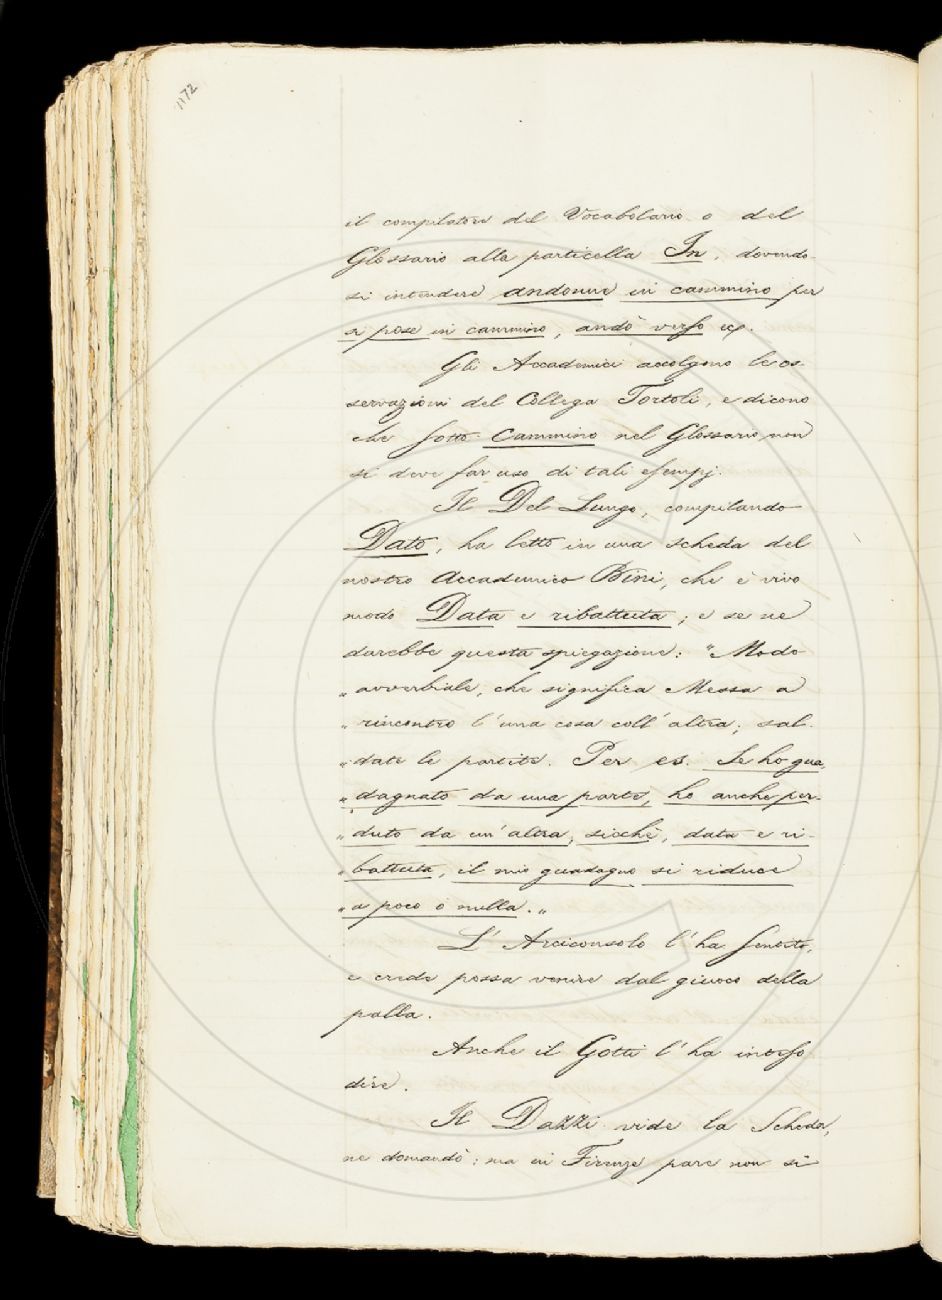 1172
il compilatore del Vocabolario o del
Glossario alla particella In, dovendo-
si intendere andonne in cammino per
si pose in cammino, andò verso ec.
Gli Accademici accolgono le os-
servazioni del Collega Tortoli, e dicono
che sotto Cammino nel Glossario non
si deve far uso di tali esempj.
Il Del Lungo, compilando
Dato, ha letto in una scheda del
nostro Accademico Bini, che è vivo
modo Data e ribattuta; e se ne
darebbe questa spiegazione: "Modo
" avverbiale, che significa Messa a
" rincontro l'una cosa coll'altra; sal-
" date le partite. Per es. Se ho gua-
" dagnato da una parte, ho anche per-
" duto da un'altra, sicchè, data e ri-
" battuta, il mio guadagno si riduce
" a poco o nulla. "
L'Arciconsolo l'ha sentito,
e crede possa venire dal giuoco della
palla.
Anche il Gotti l'ha inteso
dire.
Il Dazzi vide la Scheda,
ne domandò; ma in Firenze pare non si